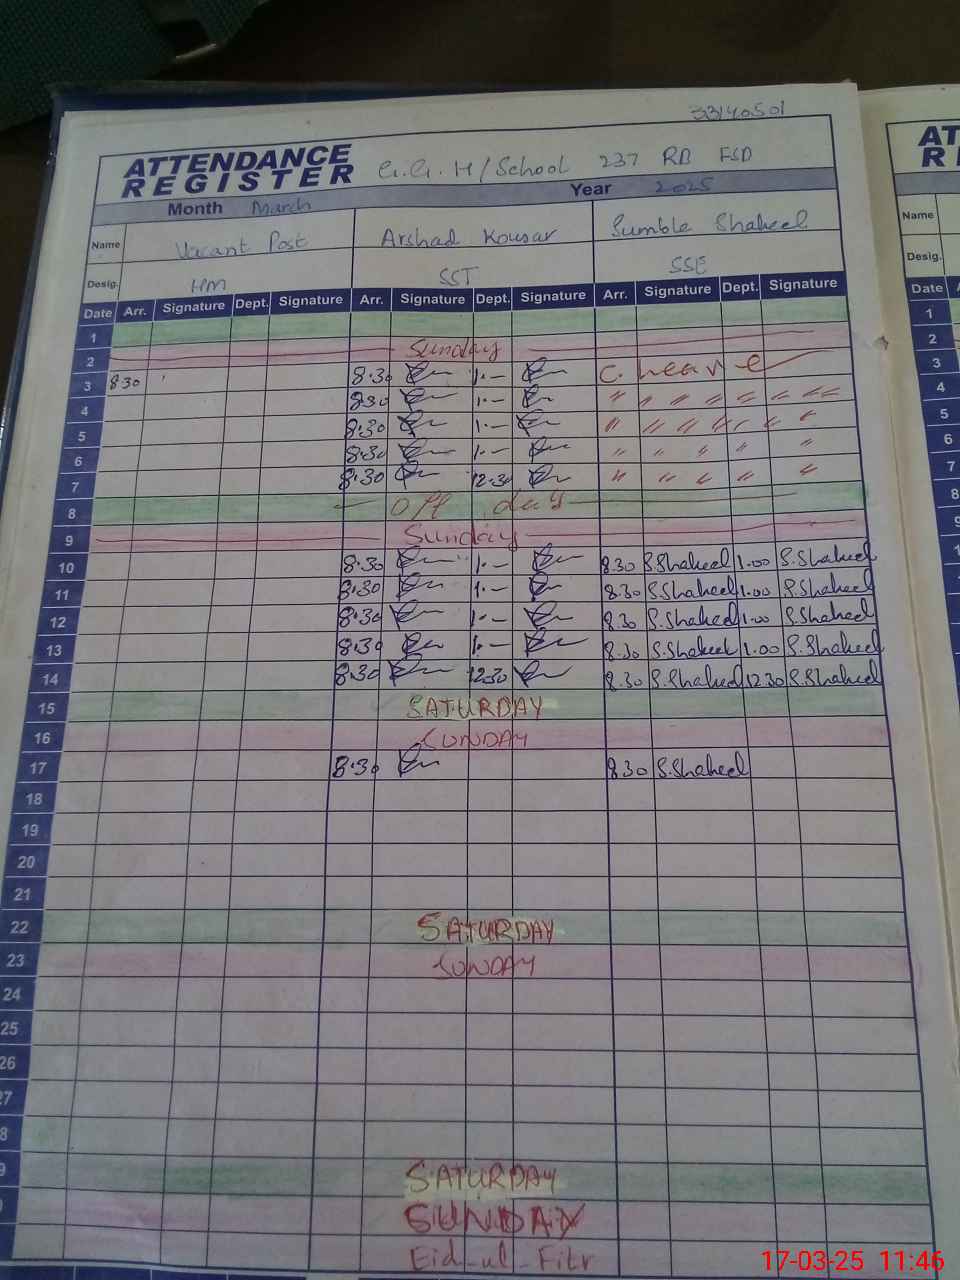 33140501
ATTENDANCE REGISTER G.G.H/School 237 RB FSD
Month March Year 2025
Name Vacant Post Arshad Kousar Sumble Shakeel
Desig. HM SST SSE
Date Arr. Signature Dept. Signature Arr. Signature Dept. Signature Arr. Signature Dept. Signature
1
2 Sunday
3 8 30 8.30 1.— C. Leave
4 8.30 1.— " " " " " " "
5 8.30 1.— " " " " " " "
6 8.30 1.— " " " " "
7 8.30 12.30 " " " " "
8 Off day
9 Sunday
10 8.30 1.— 8.30 S.Shakeel 1.00 S.Shakeel
11 8.30 1.— 8.30 S.Shakeel 1.00 S.Shakeel
12 8.30 1.— 8.30 S.Shakeel 1.00 S.Shakeel
13 8.30 1.— 8.30 S.Shakeel 1.00 S.Shakeel
14 8.30 12.30 8.30 S.Shakeel 12 30 S.Shakeel
15 SATURDAY
16 SUNDAY
17 8.30 8 30 S.Shakeel
18
19
20
21
22 SATURDAY
23 SUNDAY
24
25
26
27
8
9 SATURDAY
SUNDAY
Eid-ul-Fitr
AT
R
Name
Desig.
Date
1
2
3
4
5
6
7
8
9
17-03-25 11:46